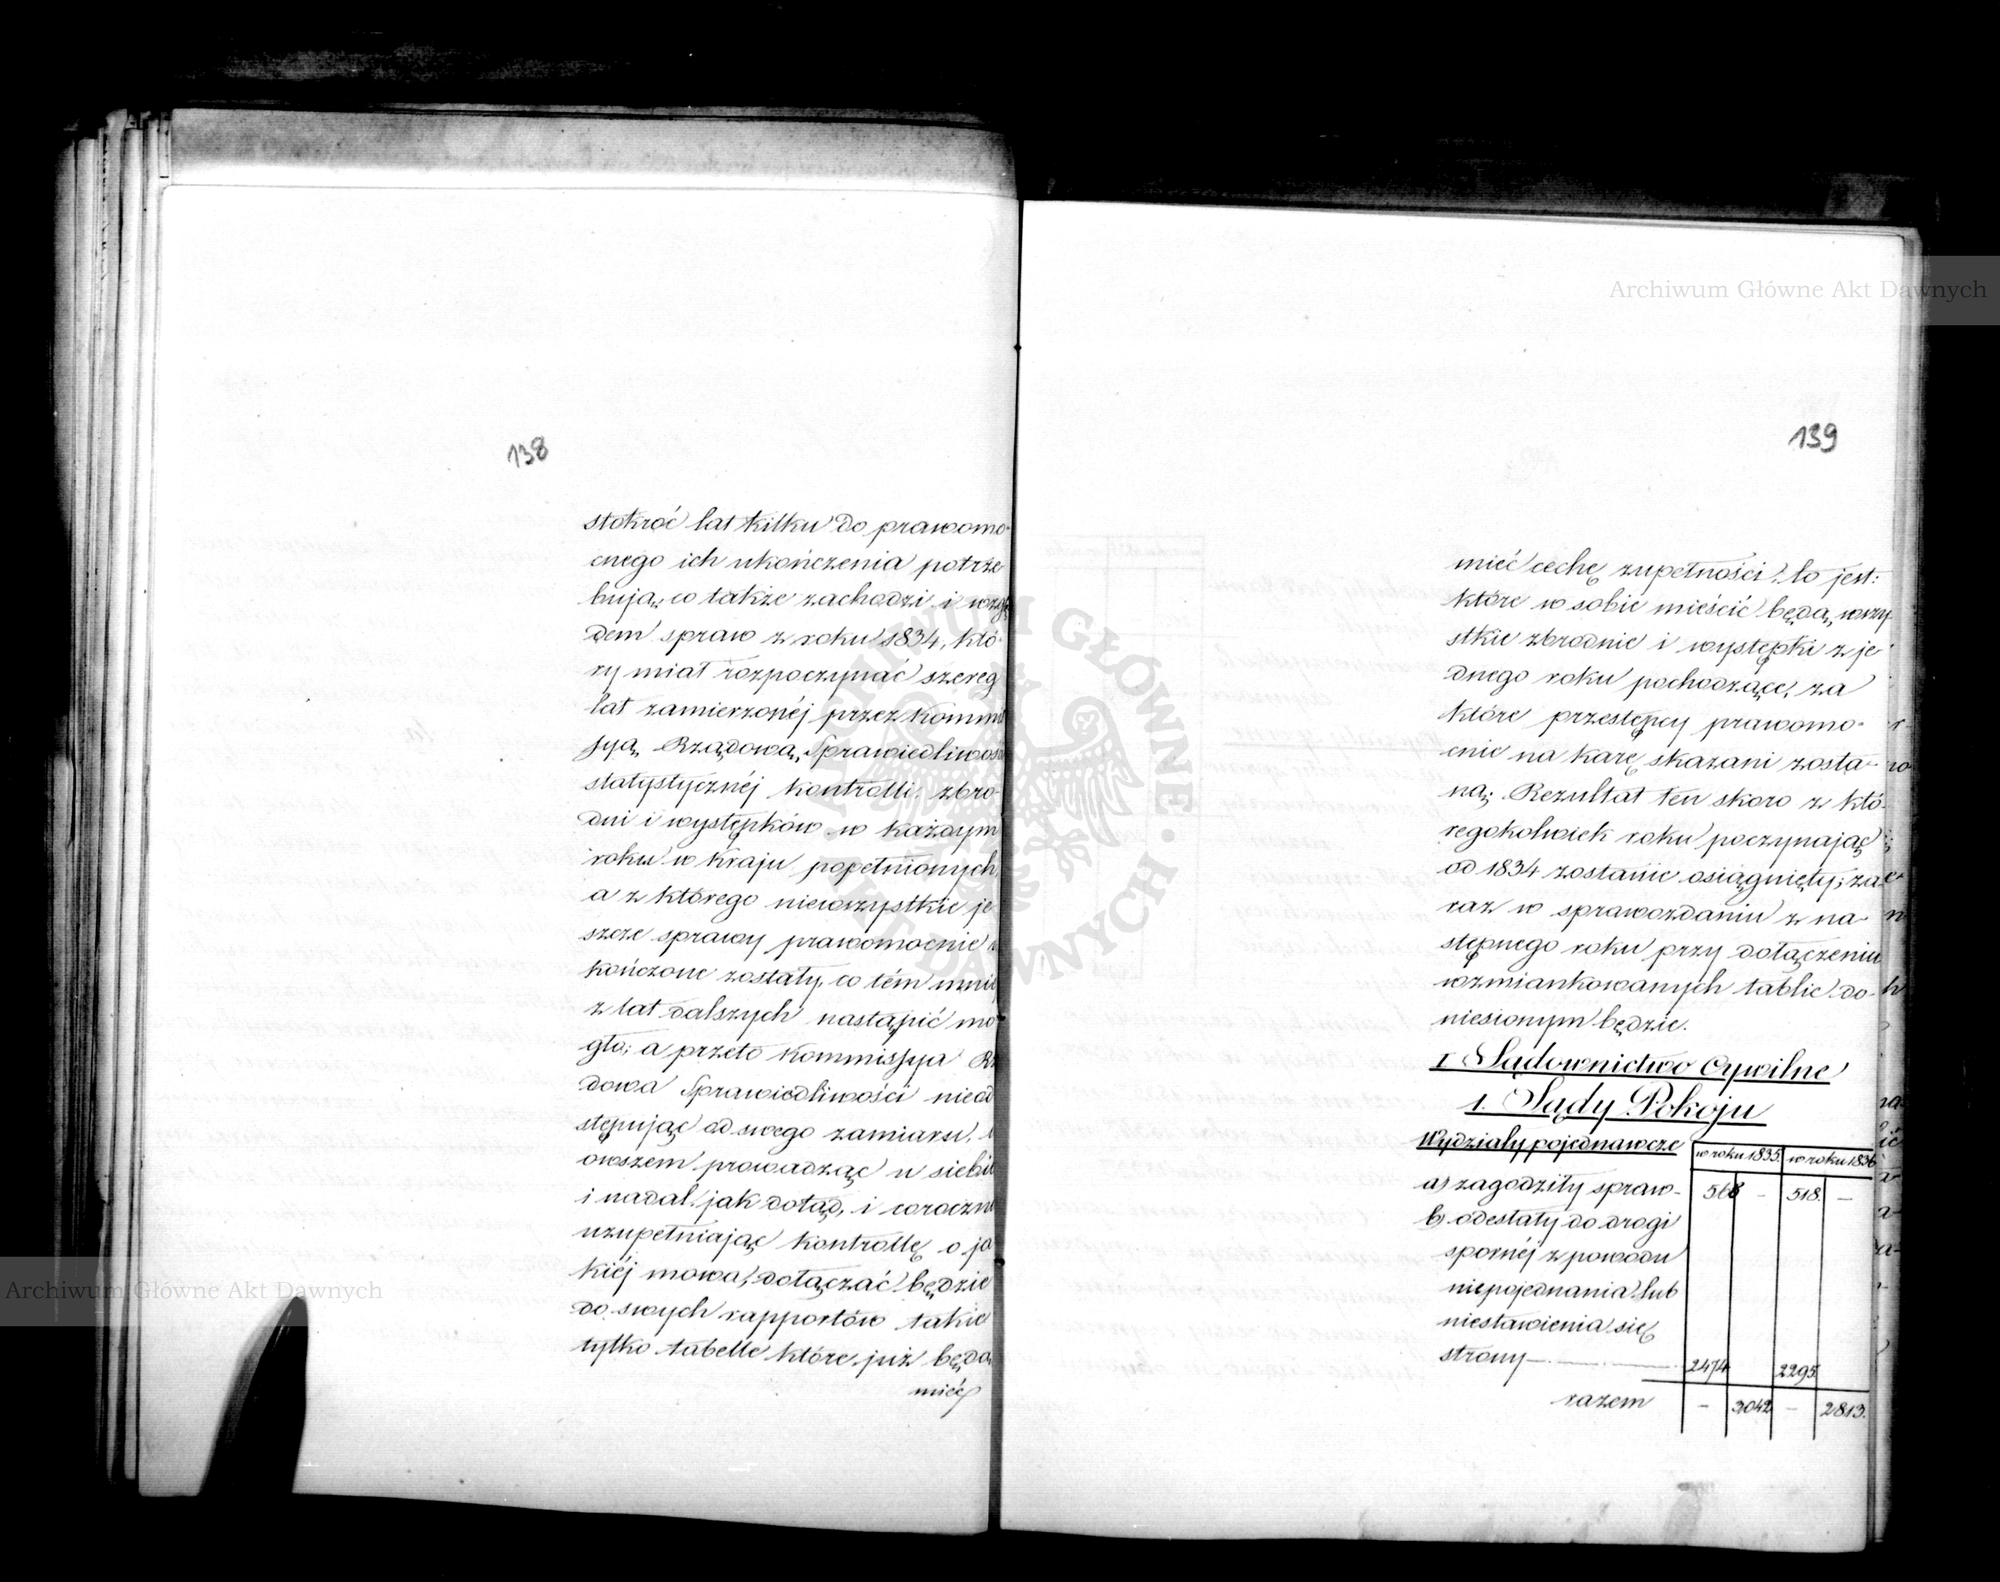 138
stokroć lat kilku do prawomo-
cnego ich ukończenia potrze
bują; co także zachodzi i wzglę
dem spraw z roku 1834, któ-
ry miał rozpoczynać szereg
lat zamierzonéj przez Kommis
syą Rządową Sprawiedliwości
statystycznéj kontrolli, zbro-
dni i występków w każdym
roku w kraju popełnionych,
a z którego niewszystkie je
szcze sprawy prawomocnie u
kończone zostały, co tém mniéj
z lat dalszych nastąpić mo
gło; a przeto Kommissya Rzą
dowa Sprawiedliwości nieod
stępując od swego zamiaru, i
owszem prowadząc u siebie
i nadal, jak dotąd, i corocznie
uzupełniając kontrollę o ja
kiéj mowa, dołączać będzie
do swych rapportów takie
tylko tabelle które już będą
mieć
139
mieć cechę zupełności, to jest:
które w sobie mieścić będą wszy
stkie zbrodnie i występki z je
dnego roku pochodzące, za
które przestępcy prawomo-
cnie na karę skazani zosta-
ną; Rezultat ten skoro z któ-
regokolwiek roku poczynając
od 1834 zostanie osiągnięty, za-
raz w sprawozdaniu z na-
stępnego roku przy dołączeniu
wzmiankowanych tablic do-
niesionym będzie.
I Sądownictwo Cywilne
1. Sądy Pokoju
Wydziały pojednawcze w roku 1835. w roku 1836
a) zagodziły spraw- 568 - 518. -
b) odesłały do drogi
spornéj z powodu
niepojednania lub
niestawienia się
strony 2474 2295.
razem - 3042 - 2813.
Archiwum Główne Akt Dawnych
Archiwum Główne Akt Dawnych
ARCHIWUM GŁÓWNE · AKT DAWNYCH ·